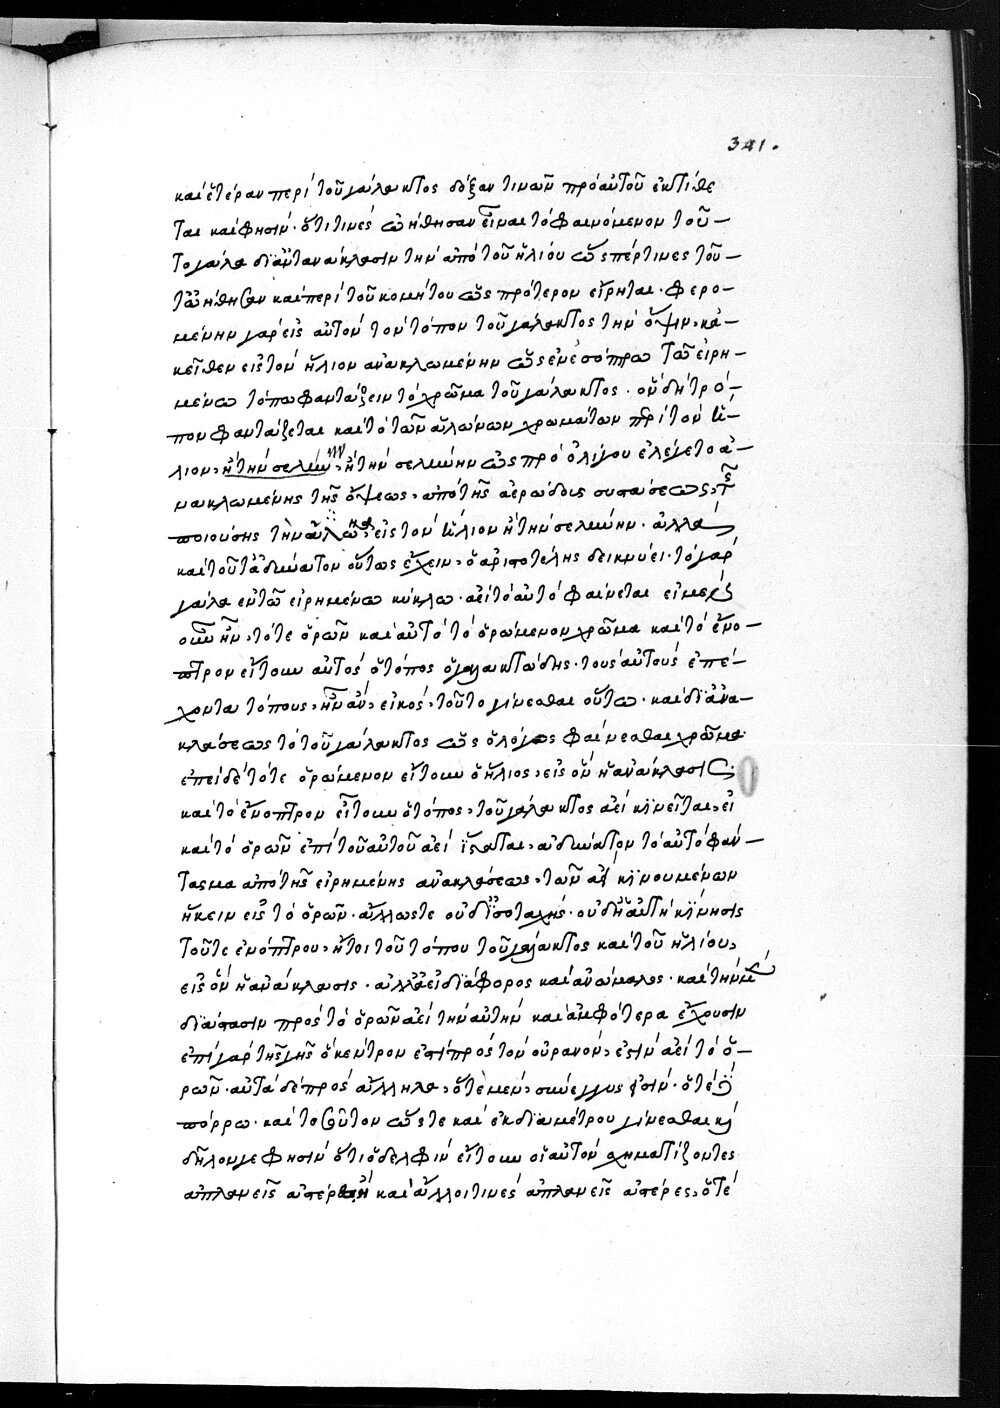 341.
καὶ ἑτέραν περὶ τοῦ γάλακτος δόξαν τινῶν πρὸ αὐτοῦ ἐκτίθε
ται καὶ φησίν· ὅτι τινὲς ὠήθησαν εἶναι τὸ φαινόμενον τοῦ-
το γάλα δι' ἀντανάκλασιν τὴν ἀπὸ τοῦ ἡλίου ὥσπέρ τινες τοῦ-
τ' ὠήθησαν καὶ περὶ τοῦ κομήτου ὡς πρότερον εἴρηται. φερο-
μένην γὰρ εἰς αὐτὸν τὸν τόπον τοῦ γάλακτος τὴν ὄψιν, κἀ-
κεῖθεν εἰς τὸν ἥλιον ἀνακλωμένην ὡς ἐν ἐσόπτρω τῶ εἰρη-
μένω τόπω φαντάζειν τὸ χρῶμα τοῦ γάλακτος. ὃν δὴ τρό-
πον φαντάζεται καὶ τὸ τῶν ἁλώνων χρωμάτων περὶ τὸν ἥ-
λιον, ἢ τὴν σελήνην, ἢ τὴν σελήνην ὡς πρὸ ὀλίγου ἐλέγετο ἀ-
νακλωμένης τῆς ὄψεως, ἀπὸ τῆς ἀερώδους συστάσεως, τῆς
ποιούσης τὴν ἅλω, εἰς τὸν ἥλιον ἢ τὴν σελήνην. ἀλλὰ
καὶ τοῦτ' ἀδύνατον οὕτως ἔχειν, ὁ ἀριστοτέλης δεικνύει. τὸ γὰρ
γάλα ἐν τῶ εἰρημένω κύκλω. ἀεὶ τὸ αὐτὸ φαίνεται εἰ μὲν
οὖν ἦν, τό τε ὁρῶν καὶ αὐτὸ τὸ ὁρώμενον χρῶμα καὶ τὸ ἔνο-
πτρον εἴτουν αὐτὸς ὁ τόπος ὁ γαλακτώδης. τοὺς αὐτοὺς ἐπέ-
χοντα τόπους, ἦν ἂν, εἰκὸς, τοῦτο γίνεσθαι οὕτω. καὶ δι' ἀνα-
κλάσεως τὸ τοῦ γάλακτος ὡς ὁ λόγος φαίνεσθαι χρῶμα·
ἐπεὶ δὲ τό τε ὁρώμενον εἴτουν ὁ ἥλιος, εἰς ὃν ἡ ἀνάκλασις
καὶ τὸ ἔνοπτρον εἴτουν ὁ τόπος, τοῦ γάλακτος ἀεὶ κινεῖται, εἰ
καὶ τὸ ὁρῶν ἐπὶ τοῦ αὐτοῦ ἀεὶ ἵσταται, ἀδύνατον τὸ αὐτὸ φάν-
τασμα ἀπὸ τῆς εἰρημένης ἀνακλάσεως, τῶν ἀεὶ κινουμένων
ἥκειν εἰς τὸ ὁρῶν. ἄλλωστε οὐδ' ἰσοταχής. οὐδ' ἡ αὐτὴ κίνησις
τοῦτε ἐνόπτρου, ἤτοι τοῦ τόπου τοῦ γάλακτος καὶ τοῦ ἡλίου,
εἰς ὃν ἡ ἀνάκλασις. ἀλλ' ἀεὶ διάφορος καὶ ἀνώμαλος. καὶ τὴν μὲν
διάστασιν πρὸς τὸ ὁρῶν ἀεὶ τὴν αὐτὴν καὶ ἀμφότερα ἔχουσιν
ἐπὶ γὰρ τῆς γῆς ὃ κέντρον ἐστὶ πρὸς τὸν οὐρανόν, ἐστὶν ἀεὶ τὸ ὁ-
ρῶν. αὐτὰ δὲ πρὸς ἄλληλα, ὁτὲ μὲν, σύνεγγυς ἐστίν. ὁτὲ δὲ
πόρρω. καὶ τοσοῦτον ὥστε καὶ ἐκ διαμέτρου γίνεσθαι κὶ
δῆλον γε φησὶν ὅτι ὁ δελφὶν εἴτουν οἱ αὐτὸν σχηματίζοντες
ἀπλανεῖς ἀστέρες ἢ καὶ ἄλλοι τινὲς ἀπλανεῖς ἀστέρες, ὁτὲ